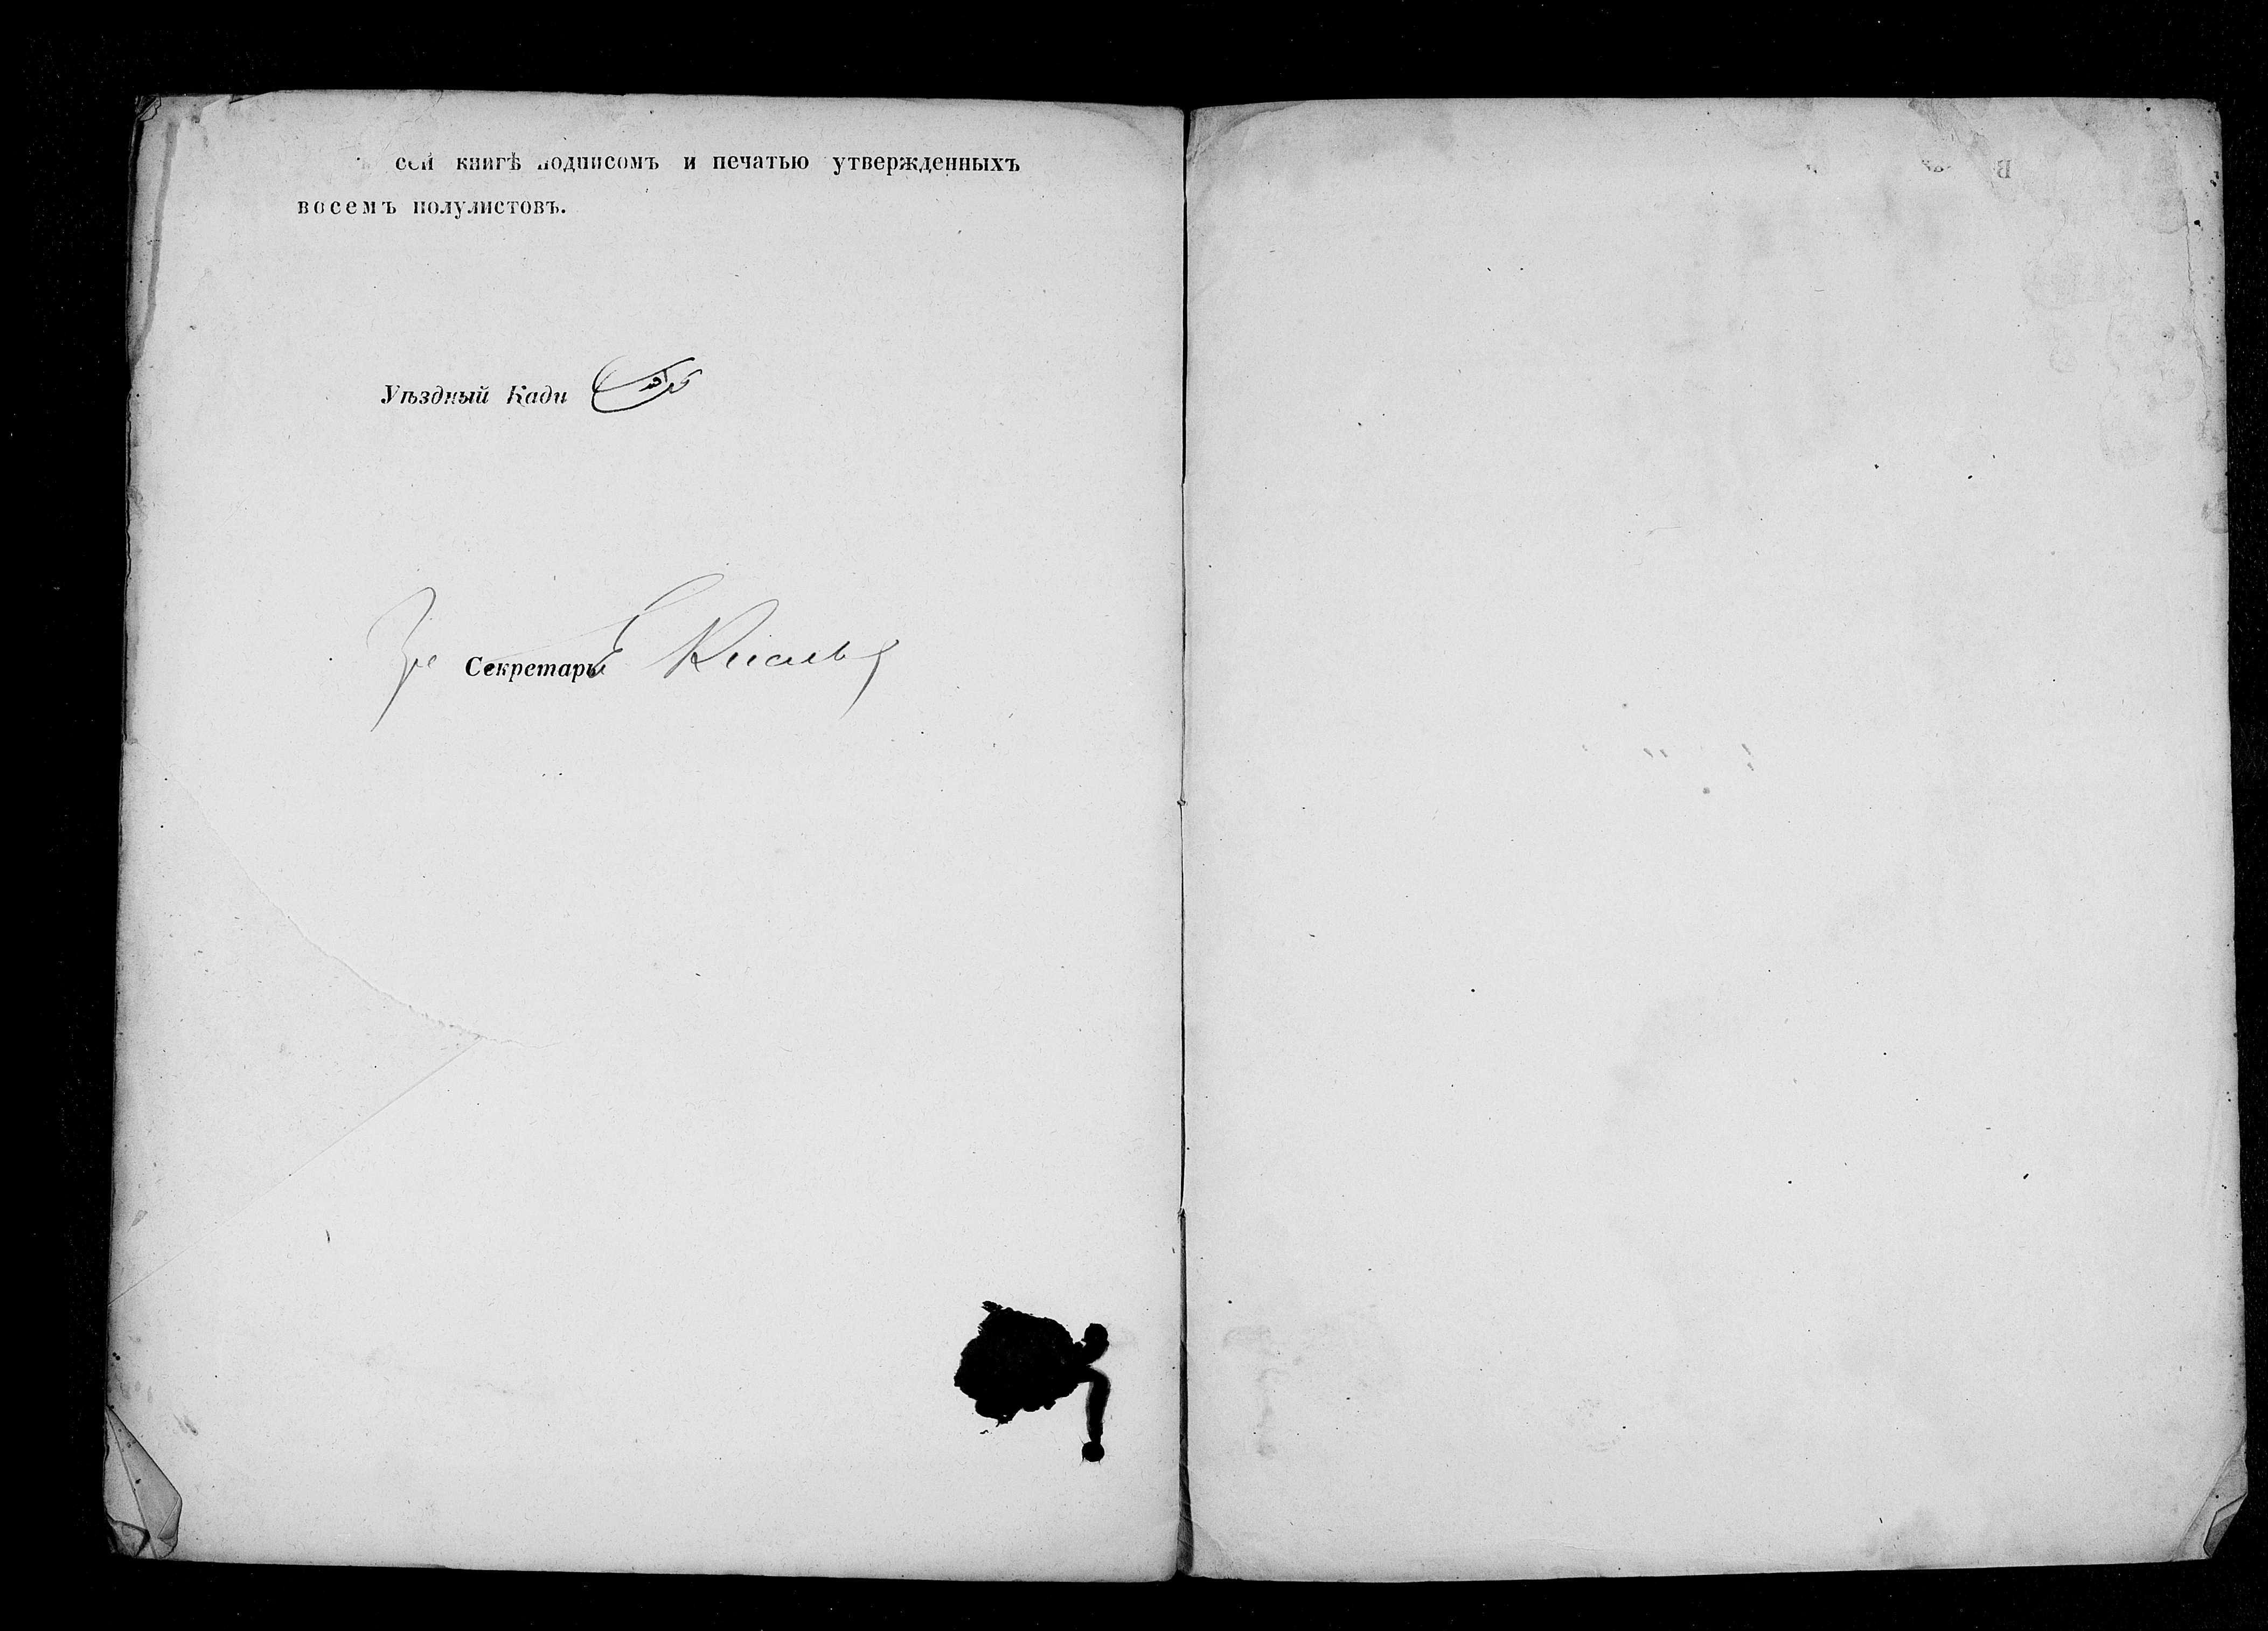 сей книгѣ подписомъ и печатью утвержденныхъ
восемъ полулистовъ.
Уѣздный Кади
Секретарь